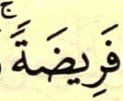 فَرِيضَةًۚ